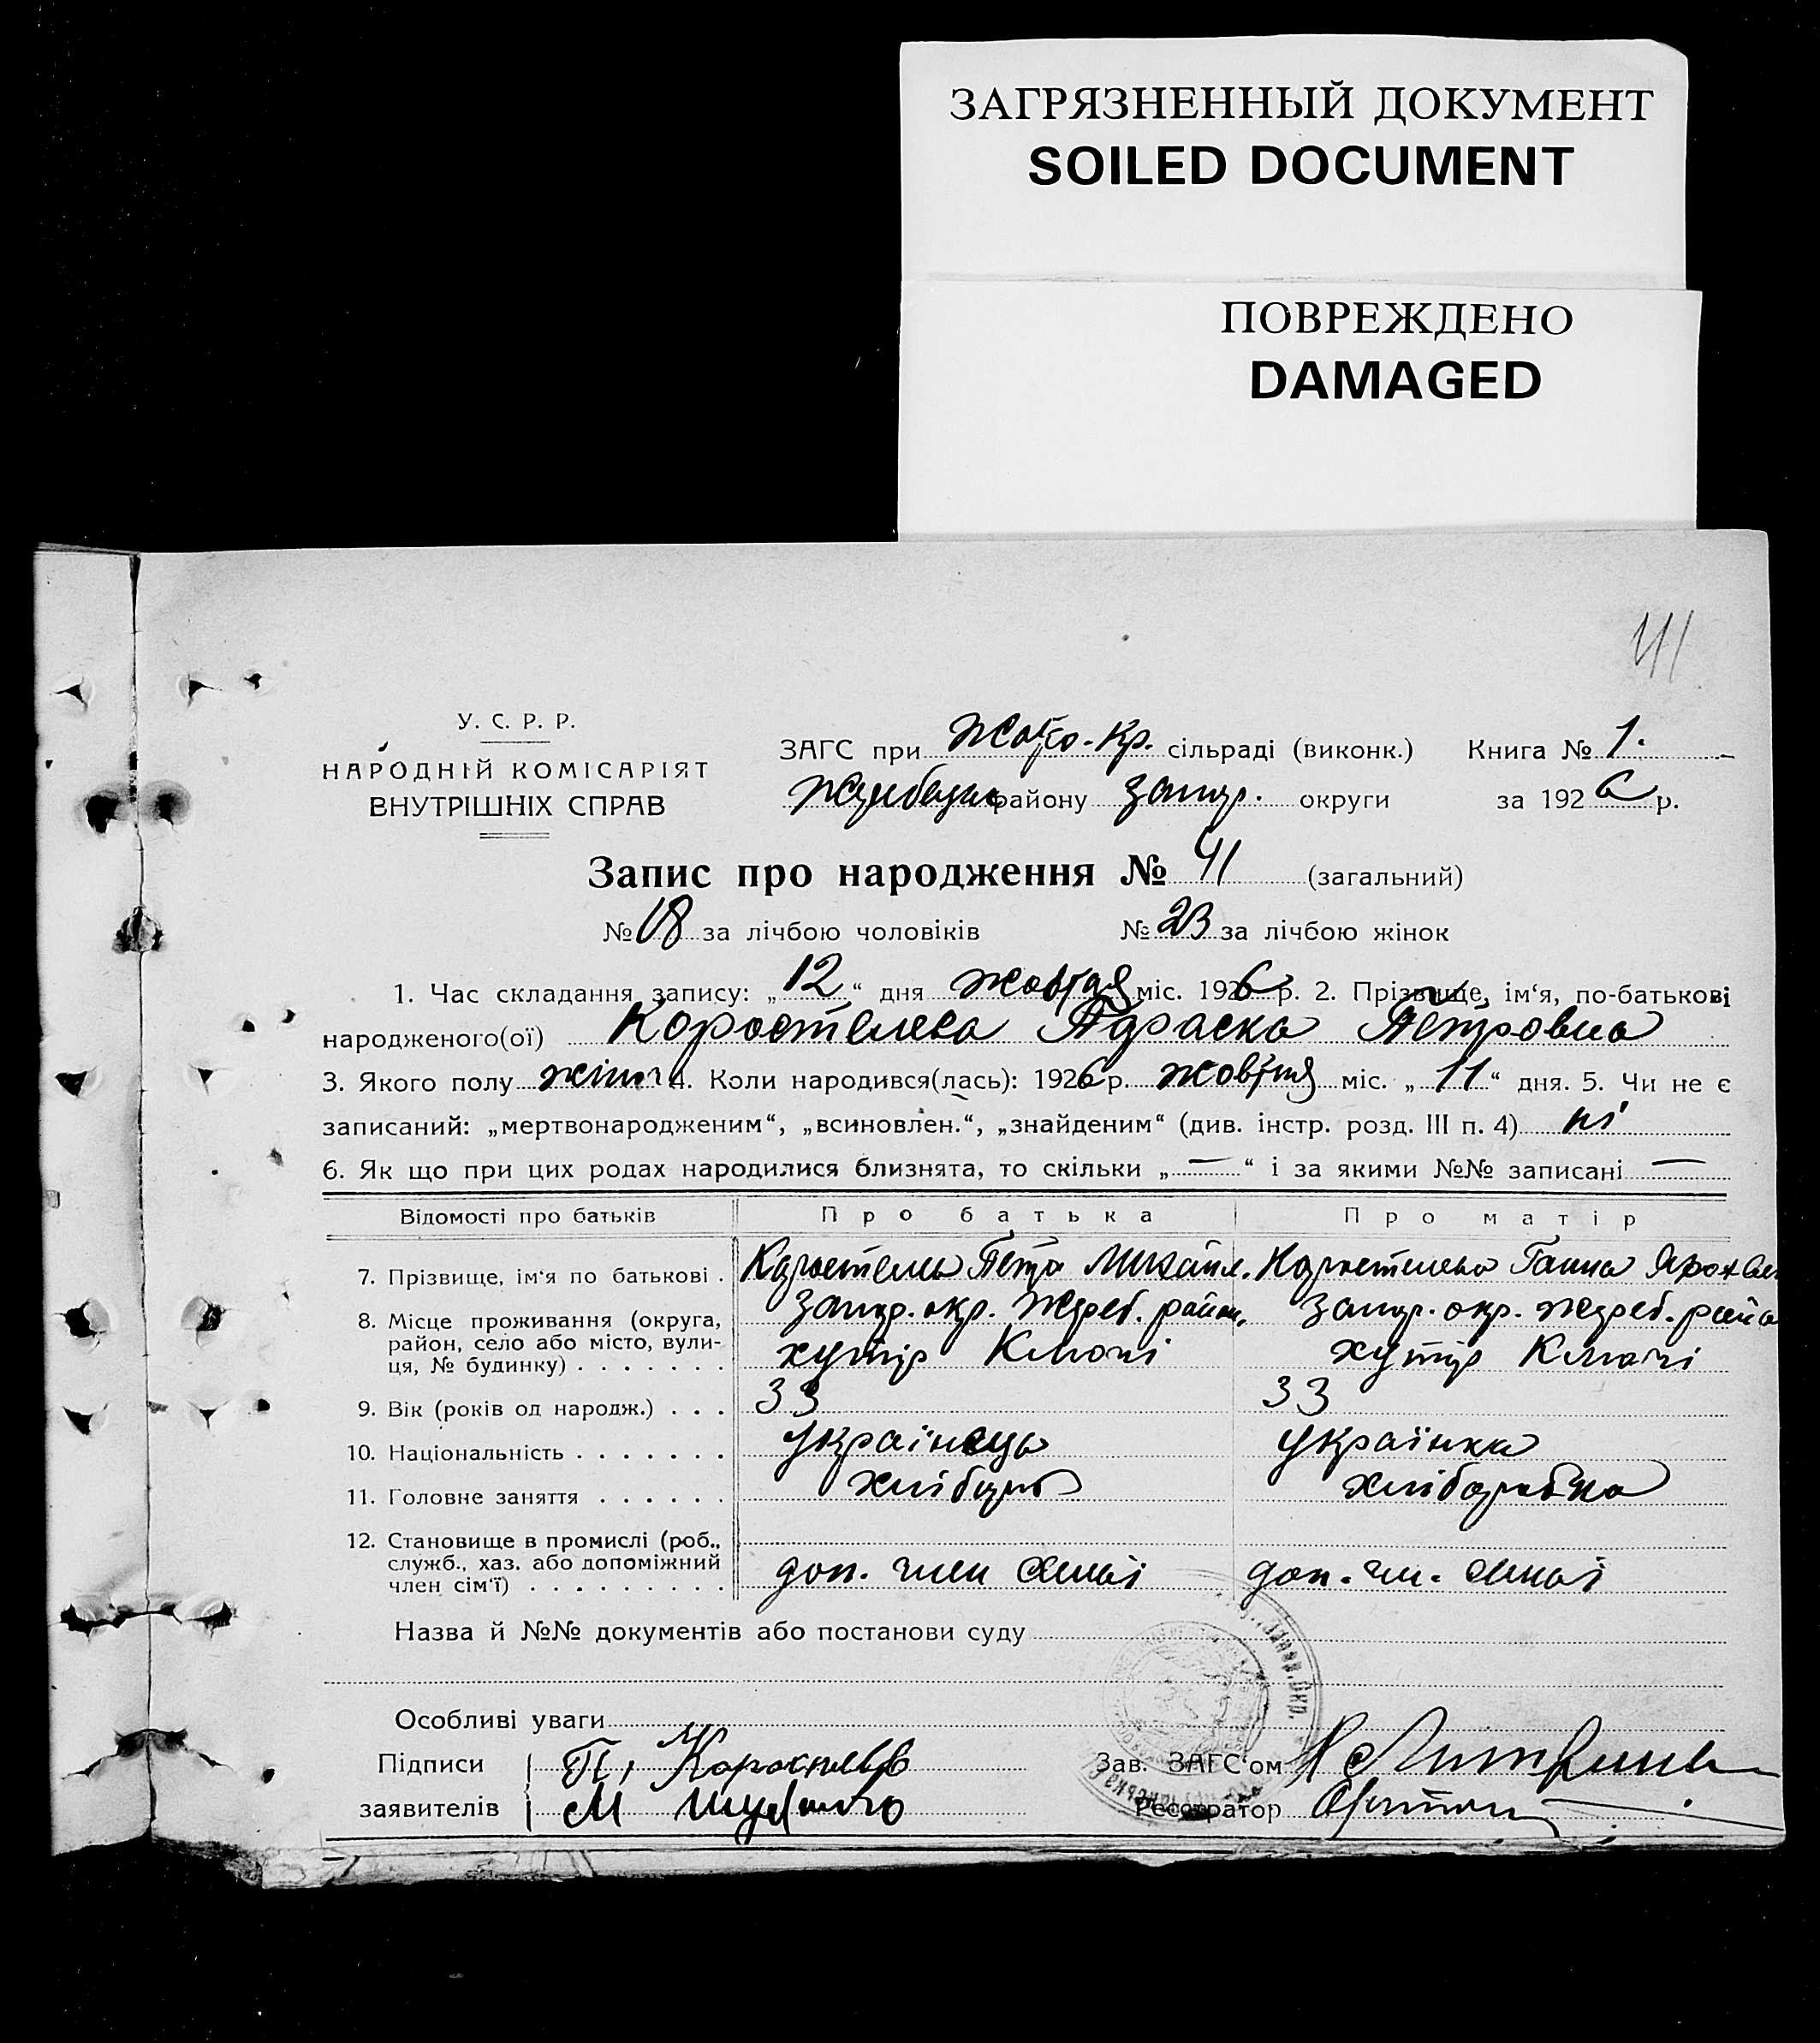 ЗАГРЯЗНЕННЫЙ ДОКУМЕНТ
SOILED DOCUMENT
ПОВРЕЖДЕНО
DAMAGED
41
У. С. Р. Р.
НАРОДНІЙ КОМІСАРІЯТ
ВНУТРІШНІХ СПРАВ
ЗАГС при сільраді (виконк.) Книга № 1.
району Запор. округи за 1926 р.
Запис про народження № 41 (загальний)
№ 18 за лічбою чоловіків № 23 за лічбою жінок
1. Час складання запису: „12“ дня жовтня міс. 1926 р. 2. Прізвище, ім‘я, по-батькові
народженого(ої) Коростелева Параска Петровна
3. Якого полу жіноч 4. Коли народився(лась): 1926 р. жовтня міс. „11“ дня. 5. Чи не є
записаний: „мертвонародженим“, „всиновлен.“, „знайденим“ (див. інстр. розд. III п. 4) ні
6. Як що при цих родах народилися близнята, то скільки „—“ і за якими №№ записані —
Відомості про батьків Про батька Про матір
7. Прізвище, ім‘я по батькові . Петро Михайл. Ганна
8. Місце проживання (округа, Запор. окр. Жереб. район, Запор. окр. Жереб. район
район, село або місто, вули-
ця, № будинку) . . . . . . . хутір Ключі хутір Ключі
9. Вік (років од народж.) . . . 33 33
10. Національність . . . . . . . українець українка
11. Головне заняття . . . . . . хлібороб хліборобка
12. Становище в промислі (роб.,
служб., хаз. або допоміжний
член сім‘ї) . . . . . . . . . доп. член семьї доп. чл. семьї
Назва й №№ документів або постанови суду
Особливі уваги
Підписи П. Коростелев Зав. ЗАГС‘ом
заявителів М Реєстратор